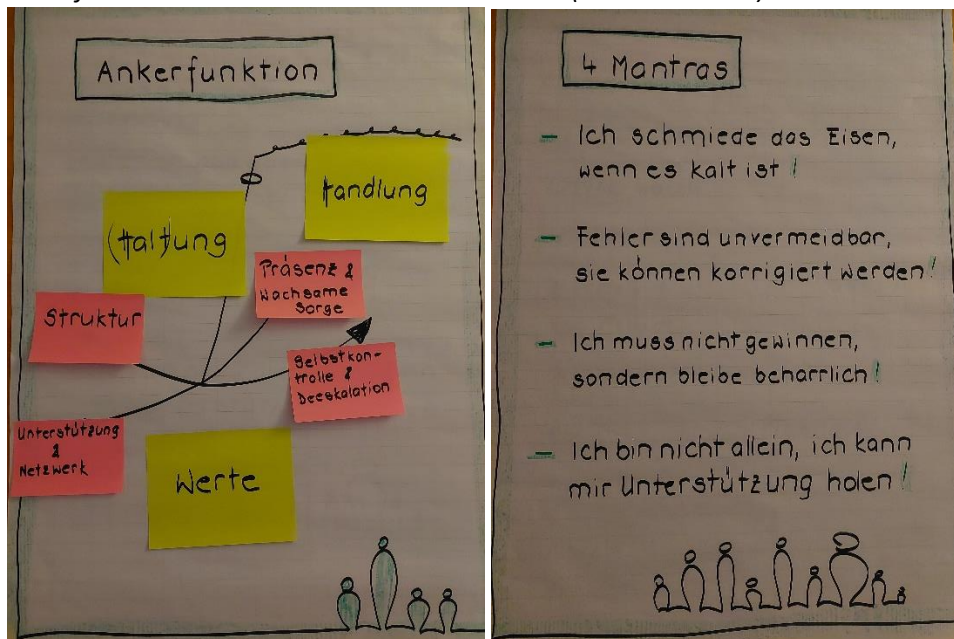 Ankerfunktion
Handlung
(Halt)ung
Präsenz &
Wachsame
Sorge
Struktur
Selbstkon-
trolle &
Deeskalation
Unterstützung
&
Netzwerk
Werte
4 Mantras
- Ich schmiede das Eisen,
wenn es kalt ist!
- Fehler sind unvermeidbar,
sie können korrigiert werden!
- Ich muss nicht gewinnen,
sondern bleibe beharrlich!
- Ich bin nicht allein, ich kann
mir Unterstützung holen!